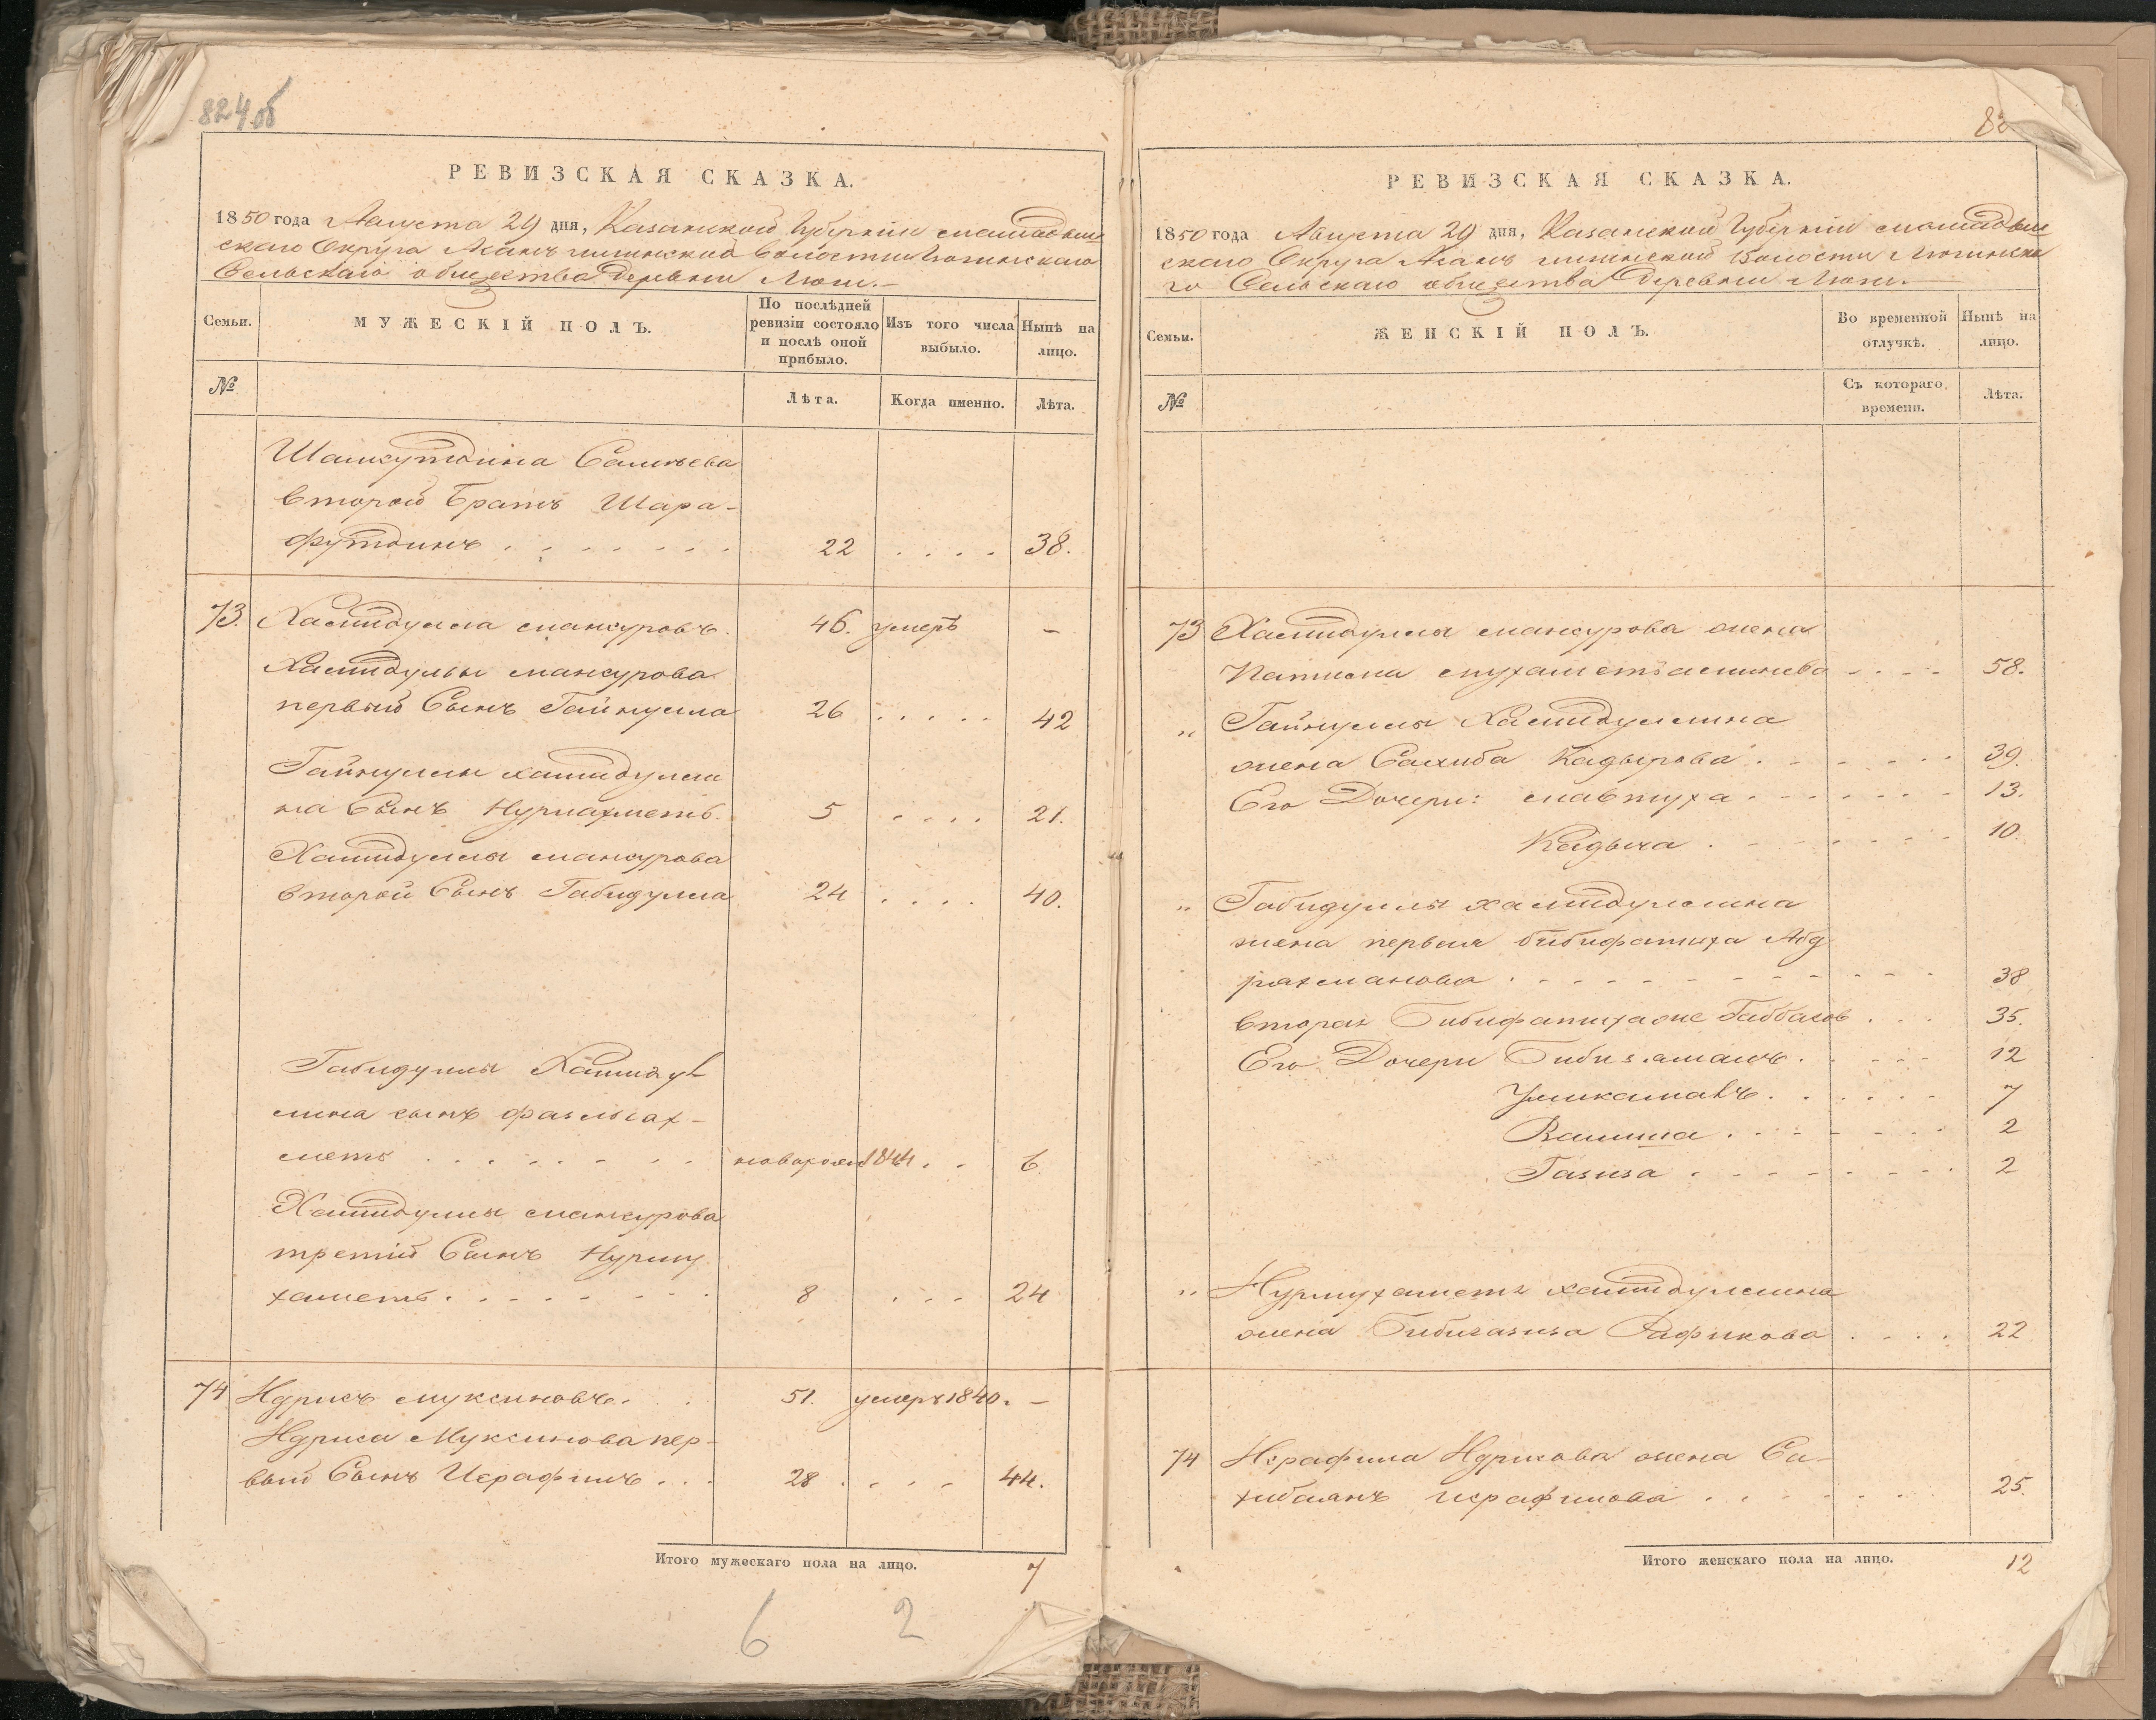 824 об
РЕВИЗСКАЯ СКАЗКА.
1850 года Августа 29 дня, Казанской Губернии Мамадыш
скаго Округа волости Люгинскаго
Сельскаго общества Деревни Люги.
Семьи.
МУЖЕСКІЙ ПОЛЪ.
По послѣдней ревизіи состояло и послѣ оной прибыло.
Изъ того числа выбыло.
Нынѣ на лицо.
№
Лѣта.
Когда именно.
Лѣта.
Шамсутдина Салиева
второй братъ Шара-
футдинъ . . . . . . . 22 . . . . 38.
73. Хамидулла Мансуровъ. 46. умеръ –
Хамидуллы Мансурова
первый Сынъ Гайнулла 26 . . . . . 42
Гайнуллы Хамидулли
на Сынъ Нурмахметъ. 5 . . . . 21.
Хамидуллы Мансурова
второй Сынъ Габидулла 24 . . . . 40.
Габидуллы Хамидул
лина сынъ Фазлыах-
метъ . . . . . . . . новорожд 1844 . . 6.
Хамидуллы Мансурова
третій Сынъ Нурму
хаметъ. . . . . . . . 8 . . . 24
74 Идрисъ Муксиновъ. . 51. умеръ 1840. –
Идриса Муксинова пер-
вый Сынъ Исрафилъ . . . 28 . . . . 44.
Итого мужескаго пола на лицо. 7
6 2
82
РЕВИЗСКАЯ СКАЗКА.
1850 года Августа 29 дня, Казанской Губерніи Мамадыш
скаго Округа Волости Люгинска
го Сельскаго общества Деревни Люги.
Семьи.
ЖЕНСКІЙ ПОЛЪ.
Во временной отлучкѣ.
Нынѣ на лицо.
№
Съ котораго времени.
Лѣта.
73 Хамидуллы Мансурова жена
. . . . 58.
„ Гайнуллы Хамидуллина
жена Сахиба Кадырова . . . . . . 39.
Его Дочери: Мавтуха . . . . . . 13.
Кадыча . . . . . . . 10.
„ Габидуллы Хамидуллина
жена первая Бибифатиха Абд
рахманова . . . . . . . . . . 38
вторая Бибифатиха же Габбасов . . . 35.
Его Дочери . . . . . 12
Уммкамалъ. . . . . . 7
. . . . . . . 2
Газиза . . . . . . . . 2
„ Нурмухамета Хамидуллина
жена Бибигазиза Рафикова . . . . 22
74 Исрафила Идрисова жена Са-
хибзянъ Исрафилова . . . . . . . 25.
Итого женскаго пола на лицо. 12